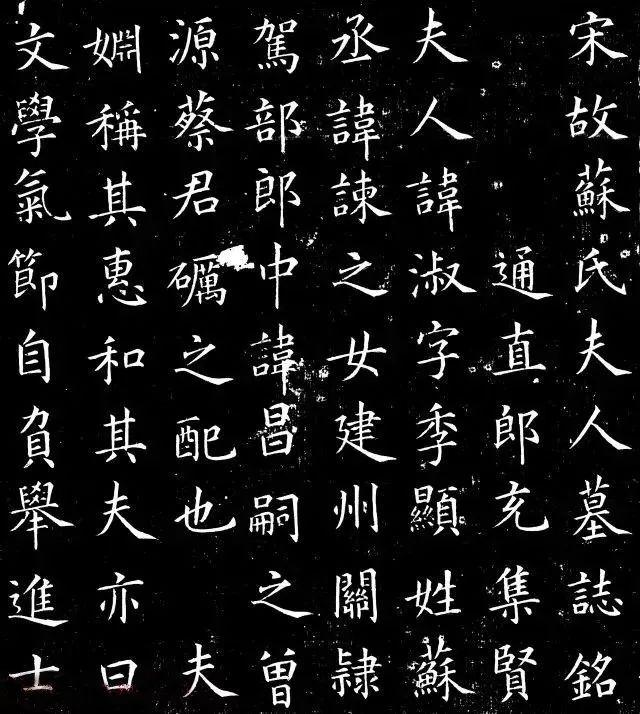 宋故蘇氏夫人墓誌銘
通直郎充集賢
夫人諱淑字季顯姓蘇
丞諱諫之女建州關隷
駕部郎中諱昌嗣之曽
源蔡君礪之配也　夫
婣稱其惠和其夫亦曰
文學氣節自負舉進士